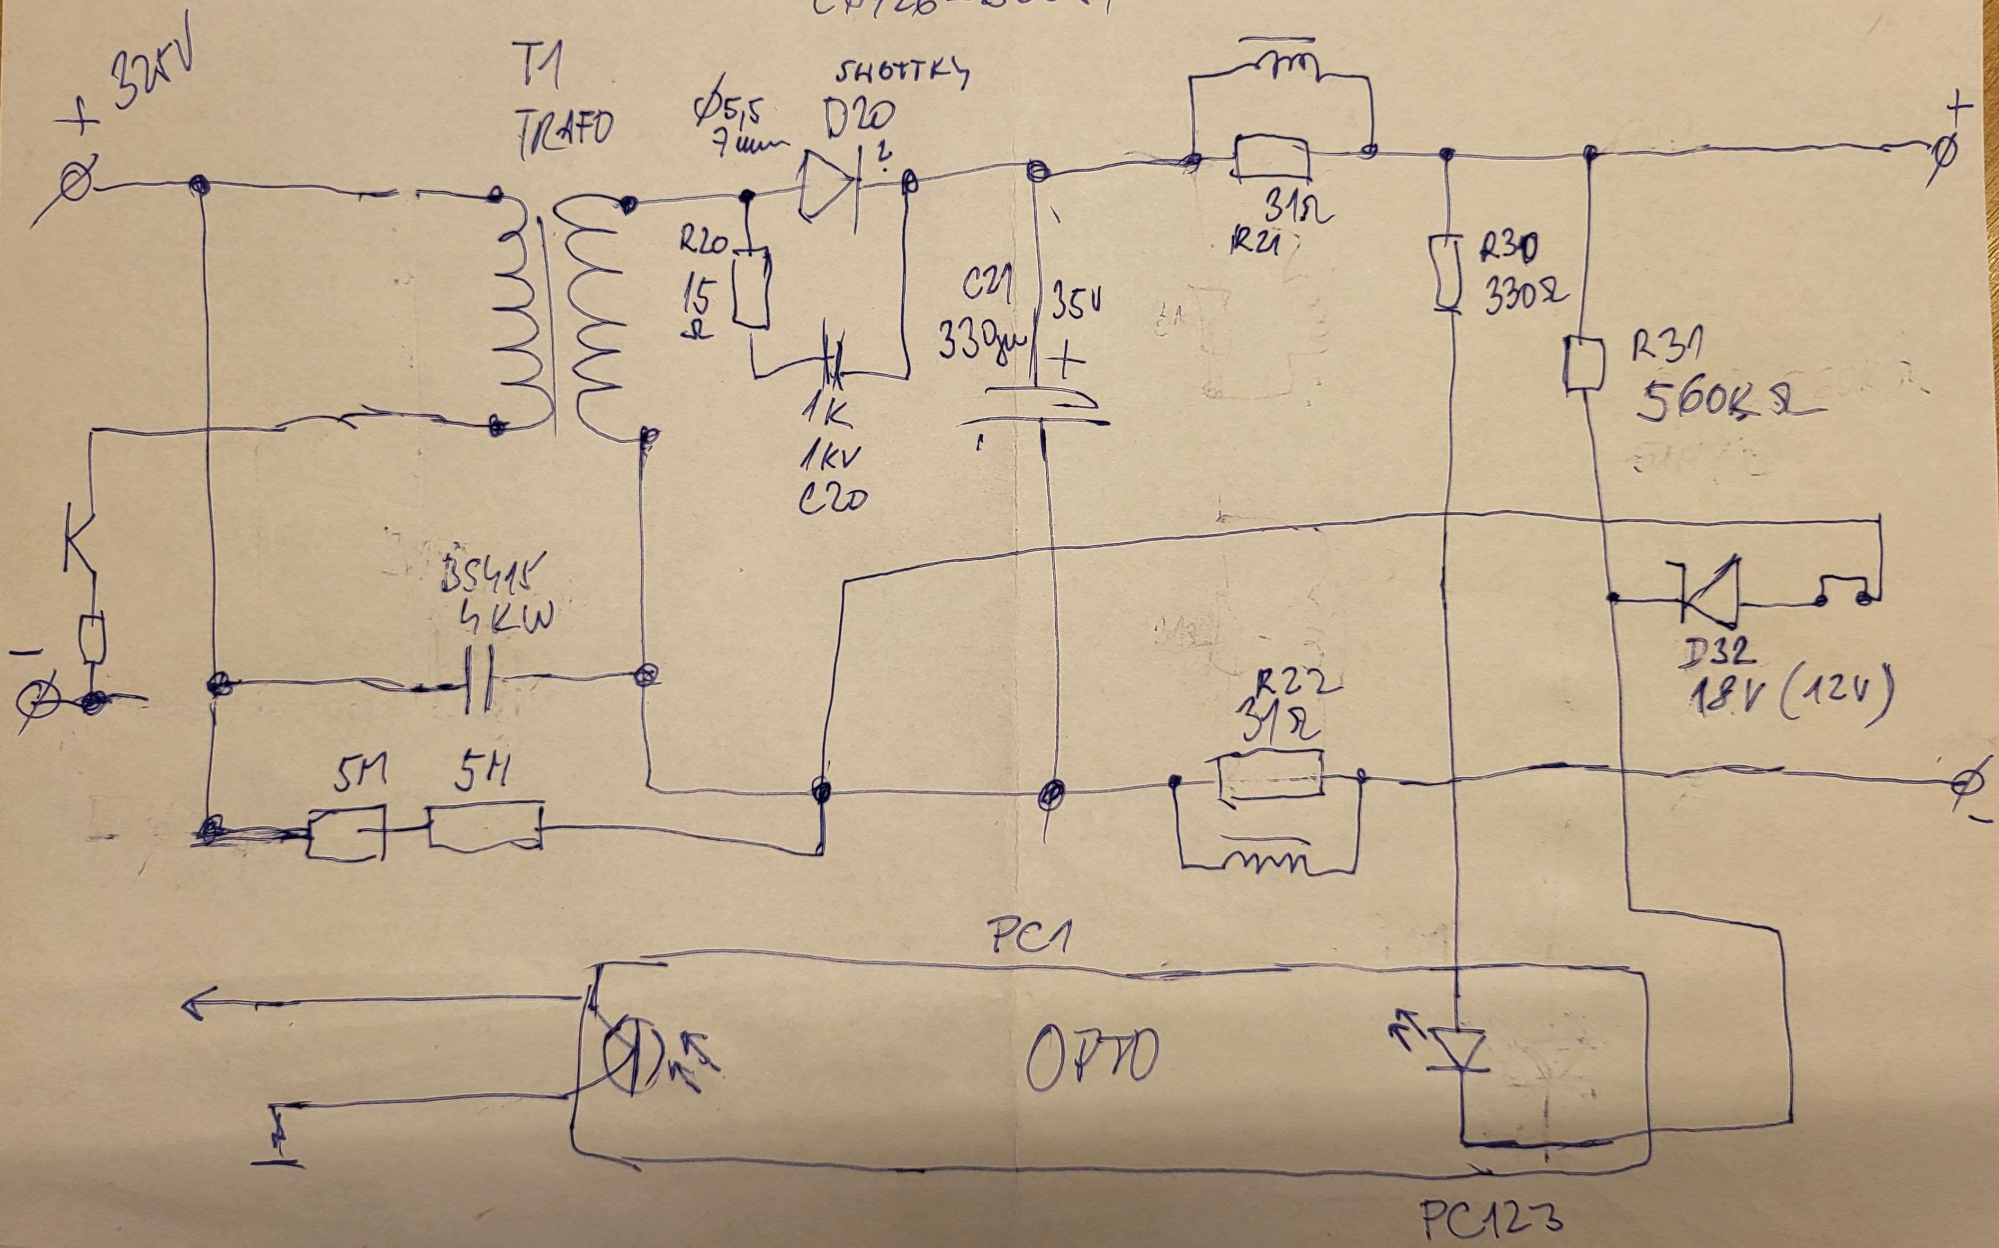 + 325V
T1
TRAFO
Ø5,5
7mm
SHOTTKY
D20
R20
15
Ω
1K
1KV
C20
C21
330µ
35V
+
31Ω
R21
R30
330Ω
R31
560KΩ
+
BS415
4KW
D32
18V (12V)
R22
31Ω
-
5M
5M
-
PC1
OPTO
PC123